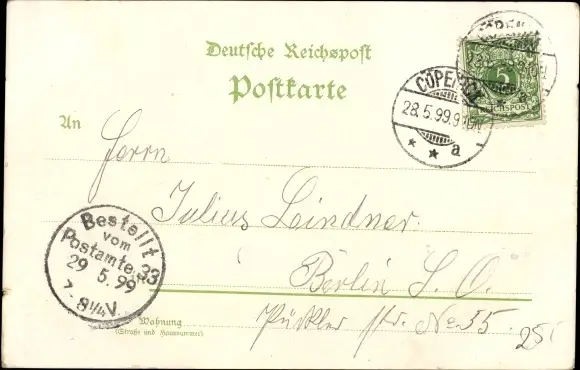 Deutsche Reichspost
Postkarte
An
Herrn
Julius Leindner
Berlin S. O.
Wohnung
(Straße und Hausnummer)
Pückler str. No 35.
25
CÖPENICK
28.5.99.9
* * a
5
REICHSPOST
Bestellt
vom
Postamte 33
29 5.99
7-8¼V.